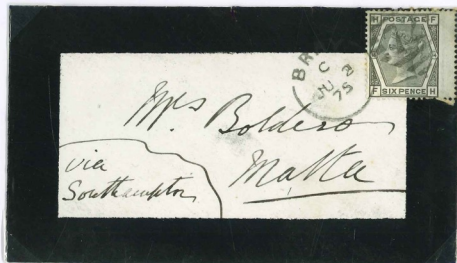 H POSTAGE F
F SIX PENCE H
C
JU 2
75
Mrs Boldero
Malta
via
Southampton